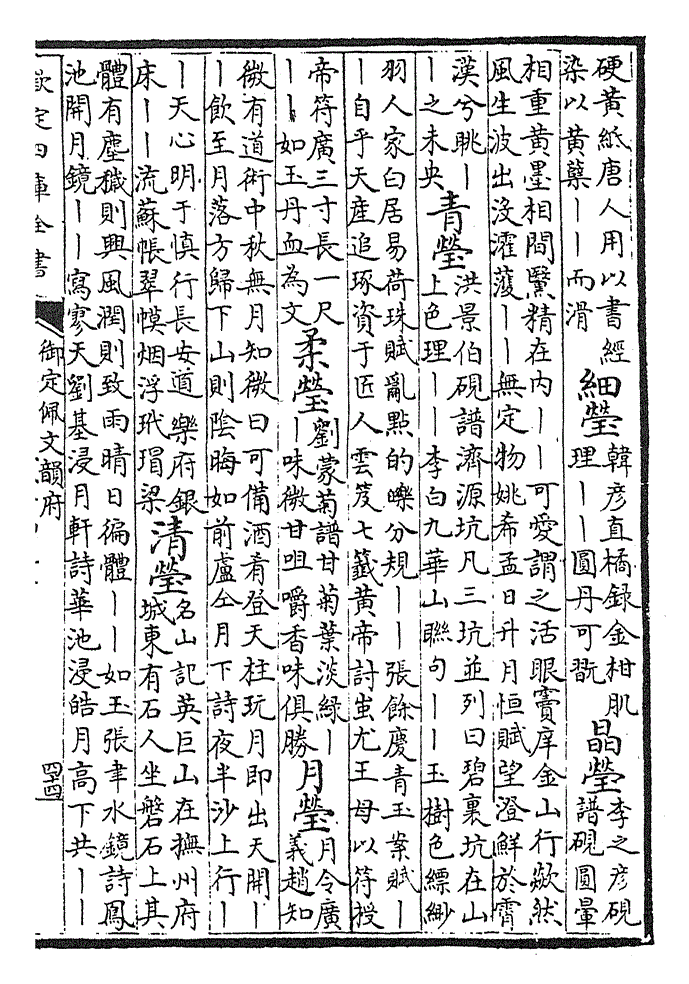 硬黄紙唐人用以書經
染以黄蘗丨丨而滑
細瑩
韓彦直橘録金柑肌
理丨丨圓丹可翫
晶瑩
李之彦硯
譜硯圓暈
相重黄墨相間黳精在内丨丨可愛謂之活眼竇庠金山行歘然
風生波出没濯濩丨丨無定物姚希孟日升月恒賦望澄鮮於霄
漢兮眺丨
丨之未央
青瑩
洪景伯硯譜濟源坑凡三坑並列曰碧裏坑在山
上色理丨丨李白九華山聯句丨丨玉樹色縹緲
羽人家白居易荷珠賦亂點的皪分規丨丨張餘慶青玉案賦丨
丨自乎天産追琢資于匠人雲笈七籤黄帝討蚩尤王母以符授
帝符廣三寸長一尺
丨丨如玉丹血為文
柔瑩
劉蒙菊譜甘菊葉淡緑丨
丨味微甘咀嚼香味俱勝
月瑩
月令廣
義趙知
微有道術中秋無月知微曰可備酒肴登天柱玩月即出天開丨
丨飲至月落方歸下山則陰晦如前盧仝月下詩夜半沙上行丨
丨天心明于慎行長安道樂府銀
床丨丨流蘇帳翠幙烟浮玳瑁梁
清瑩
名山記英巨山在撫州府
城東有石人坐磐石上其
體有塵穢則興風潤則致雨晴日徧體丨丨如玉張聿水鏡詩鳳
池開月鏡丨丨寫寥天劉基浸月軒詩華池浸皓月高下共丨丨
欽定四庫全書
御定佩文韻府
四十四